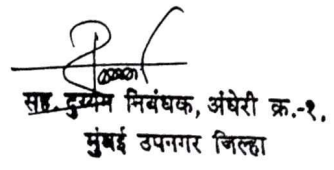 सह. दुय्यम निबंधक, अंधेरी क्र.-१.
मुंबई उपनगर जिल्हा